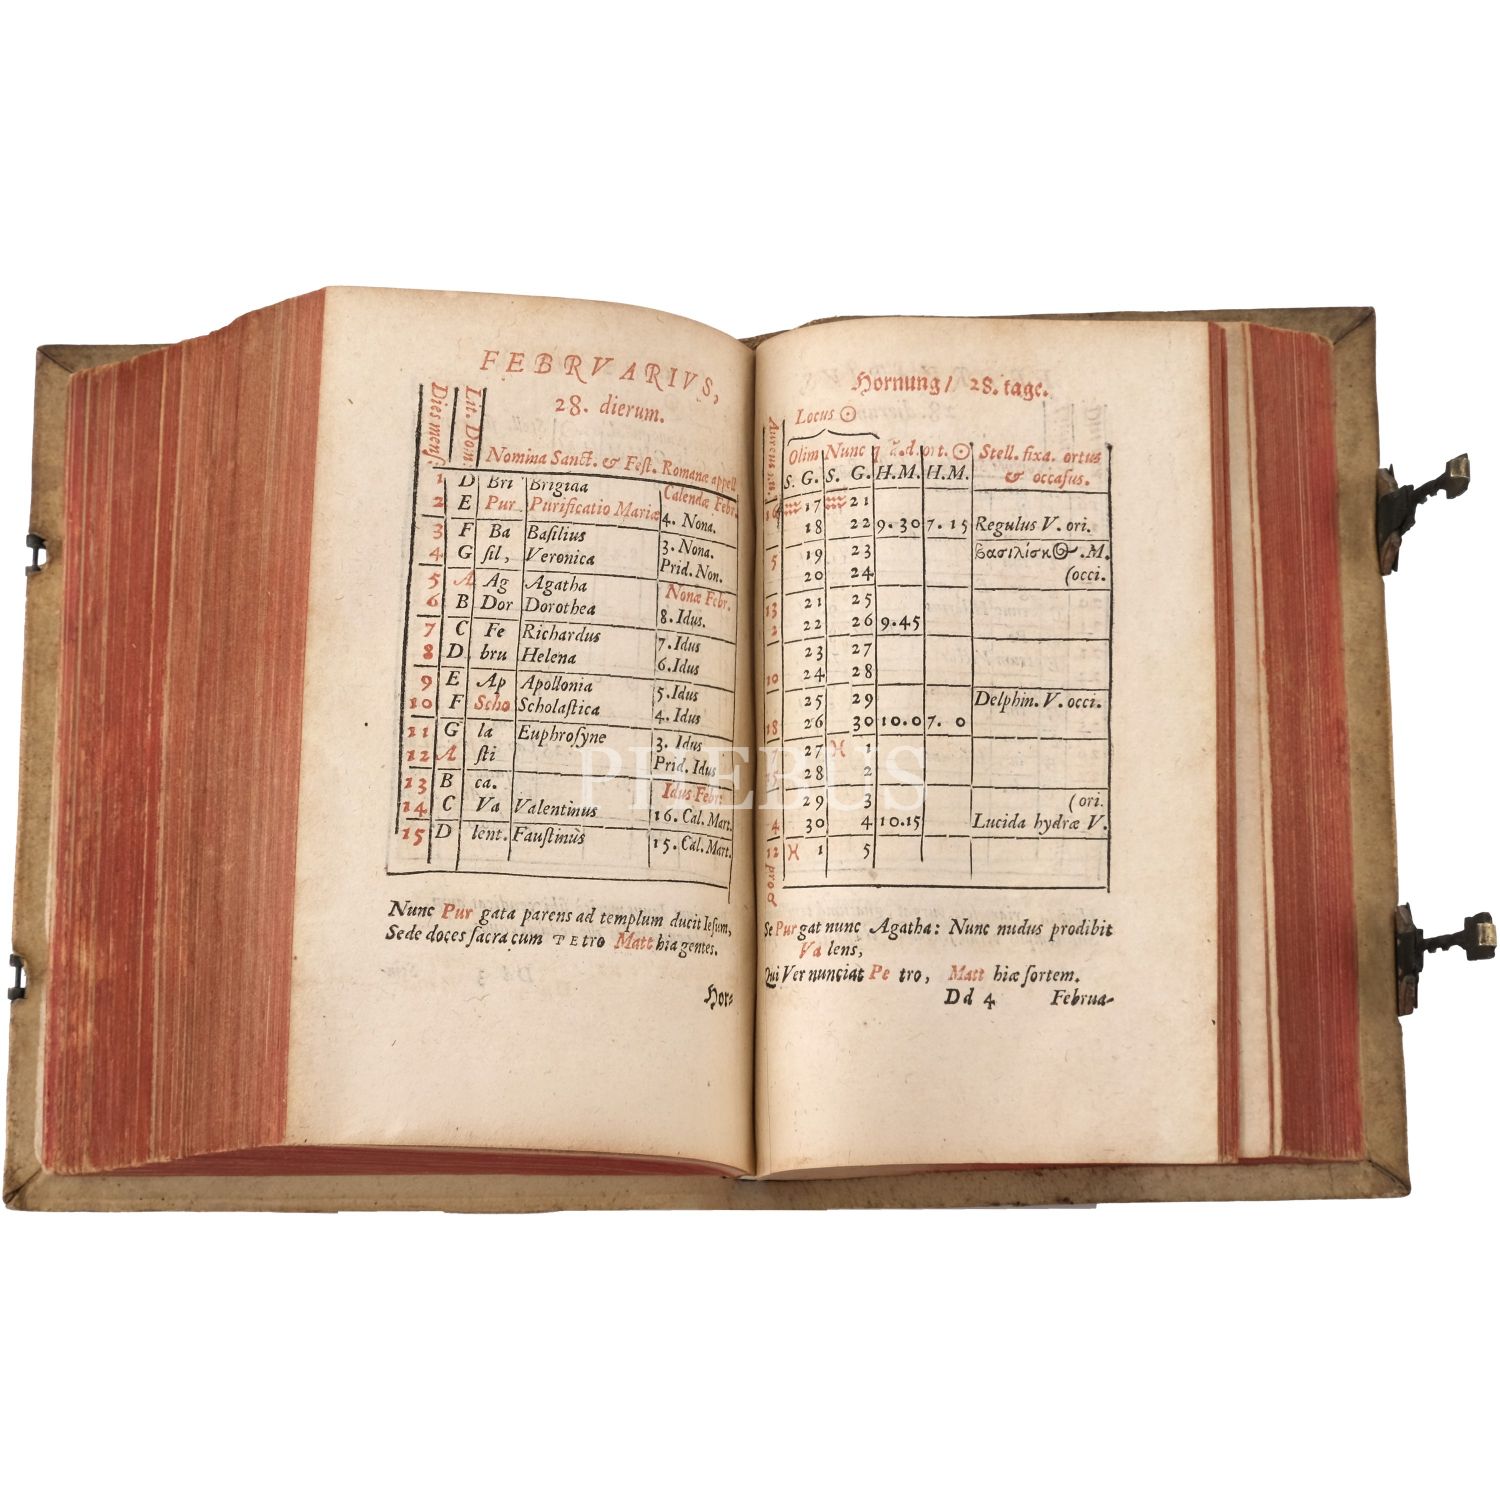 FEBRVARIVS,
28. dierum.
Dies mens. Lit. Dom. Nomina Sanct. & Fest. Romanæ appell.
1 D Bri Brigida Calendæ Febr.
2 E Pur Purificatio Mariæ 4. Nona.
3 F Ba Basilius 3. Nona.
4 G sil, Veronica Prid. Non.
5 A Ag Agatha Nonæ Febr.
6 B Dor Dorothea 8. Idus.
7 C Fe Richardus 7. Idus
8 D bru Helena 6. Idus
9 E Ap Apollonia 5. Idus
10 F Scho Scholastica 4. Idus
11 G la Euphrosyne 3. Idus
12 A sti Prid. Idus
13 B ca. Idus Febr.
14 C Va Valentinus 16. Cal. Mart.
15 D lent. Faustinus 15. Cal. Mart.
Nunc Pur gata parens ad templum ducit Iesum,
Sede doces sacra cum PEtro Matt hia gentes.
Hor-
Hornung / 28. tage.
Locus ☉
Olim Nunc ort. ☉ Stell. fixa. ortus
S. G. S. G. H.M. H.M. & occasus.
16 ♒ 17 ♒ 21
18 22 9.30 7.15 Regulus V. ori.
5 19 23 βασιλίσκος .M.
20 24 (occi.
13 21 25
2 22 26 9.45
23 27
10 24 28
25 29 Delphin. V. occi.
18 26 30 10.0 7. 0
27 ♓ 1
15 28 2
29 3 (ori.
4 30 4 10.15 Lucida hydræ V.
12 ♓ 1 5
Se Pur gat nunc Agatha: Nunc nudus prodibit
Va lens,
Qui Ver nunciat Pe tro, Matt hiæ sortem.
Dd 4 Februa-
PHEBUS